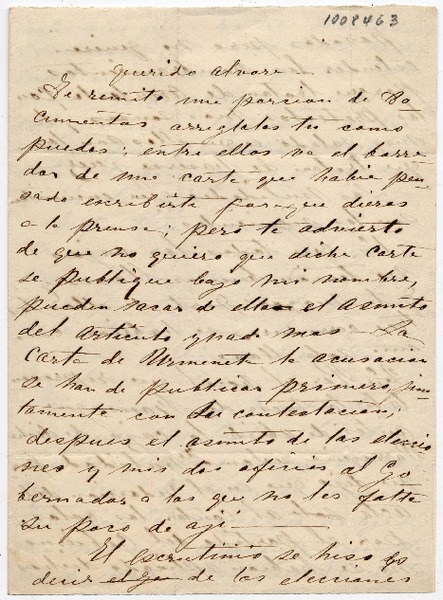 1008463
Querido Alvaro
Te remito una porsion de do-
cumentos arreglatos tú como
puedas; entre ellos va el borra-
dor de una carta que habia pen-
sado escribirte para que dieras
a la prensa; pero te advierto
de que no quiero que dicha carta
se publique bajo mi nombre,
pueden sacar de ella el asunto
del articulo y nada mas La
carta de Urmenet la acusacion
se han de publicar primero jun-
tamente con su contestacion,
despues el asunto de las eleccio
nes y mis dos oficios al Go
bernador a los que no les falta
su poco de aji
El escrutinio se hiso es
decir de las elecciones